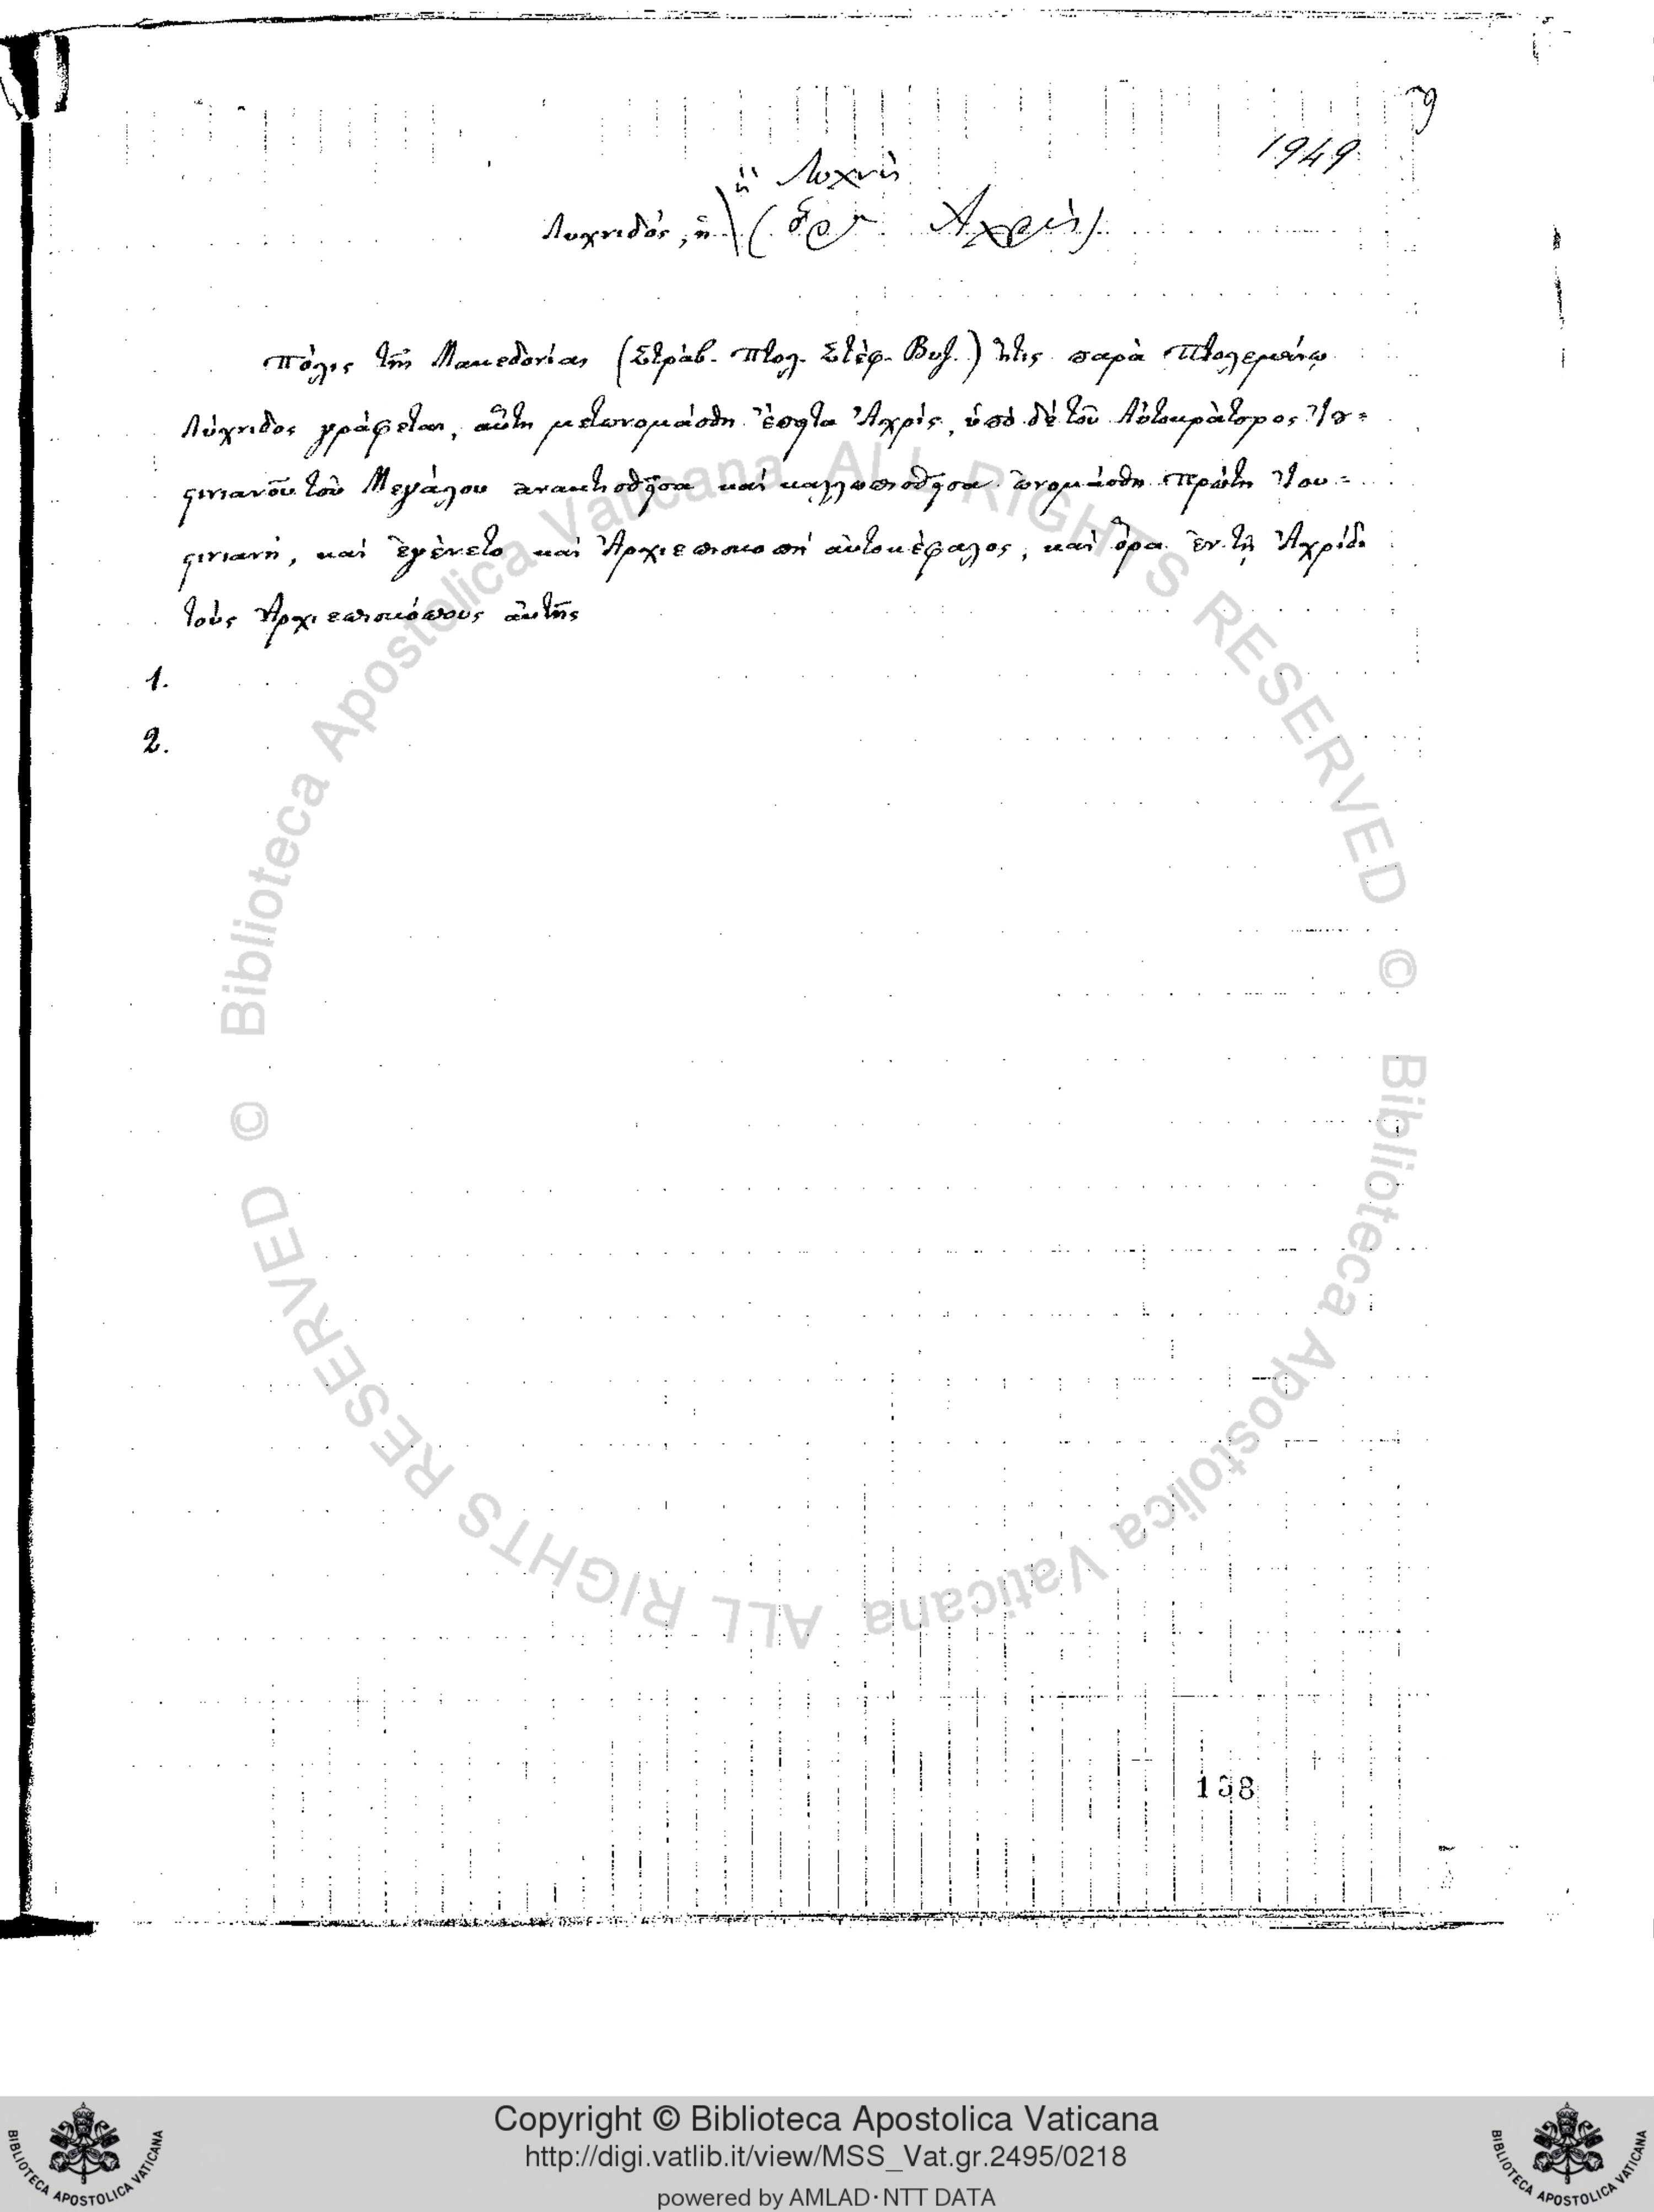 1949
ἢ Λυχνὶς
Λυχνιδός, ἡ (ὅρ Ἀχρὶς)
Πόλις τῆς Μακεδονίας (Στράβ. Πτολ. Στέφ. Βυζ.) ἥτις παρὰ Πτολεμαίῳ
Λύχνιδος γράφεται, αὕτη μετωνομάσθη ἔπειτα Ἀχρίς, ὑπὸ δὲ τοῦ Αὐτοκράτορος Ἰου=
ϛινιανοῦ τοῦ Μεγάλου ἀνακτισθεῖσα καὶ καλλωπισθεῖσα ὠνομάσθη Πρώτη Ἰου=
ϛινιανή, καὶ ἐγένετο καὶ Ἀρχιεπισκοπή αὐτοκέφαλος, καὶ ὅρα ἐν τῇ Ἀχρίδι
τοὺς Ἀρχιεπισκόπους αὐτῆς
1.
2.
138
Biblioteca Apostolica Vaticana ALL RIGHTS RESERVED ©
Biblioteca Apostolica Vaticana ALL RIGHTS RESERVED ©
Copyright © Biblioteca Apostolica Vaticana
http://digi.vatlib.it/view/MSS_Vat.gr.2495/0218
powered by AMLAD·NTT DATA
BIBLIOTECA APOSTOLICA VATICANA
BIBLIOTECA APOSTOLICA VATICANA